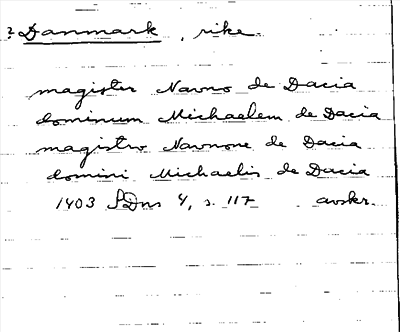 ? Danmark, rike.
magister Navno de Dacia
dominum Michaelem de Dacia
magistro Navnone de Dacia
domini Michaelis de Dacia
1403 SDns 4, s. 117 avskr.